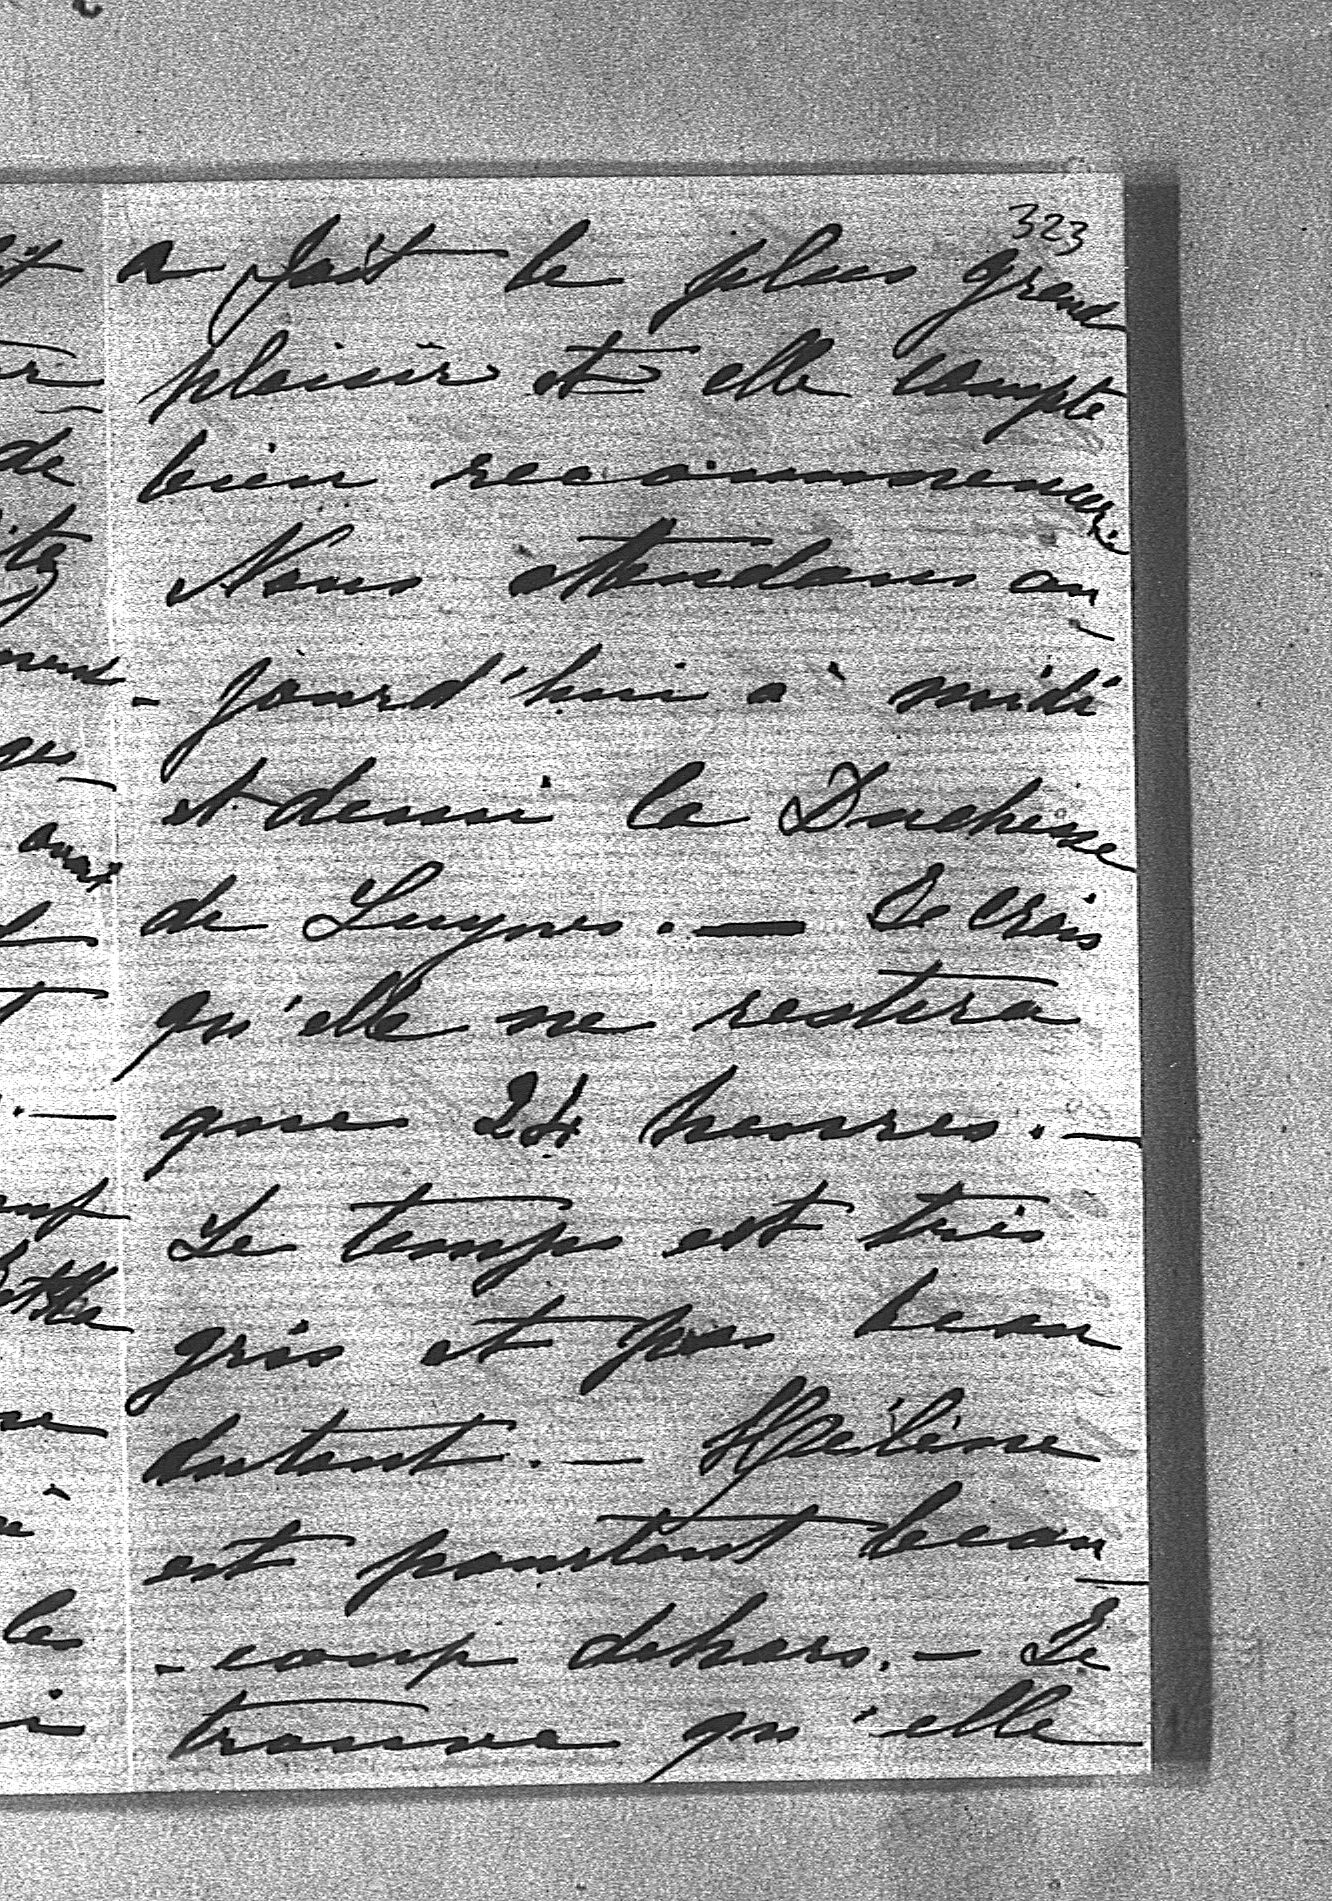 323
a fait le plus grand
plaisir et elle compte
bien recommencer.
Nous attendons au
- jourd'hui à midi
et demi la Duchesse
de Luynes. — Je crois
qu'elle ne restera
que 24 heures. —
Le temps est très
gris et pas beau
autant. — Hélène
est pourtant beau-
- coup dehors. — Je
trouve qu'elle
de
les